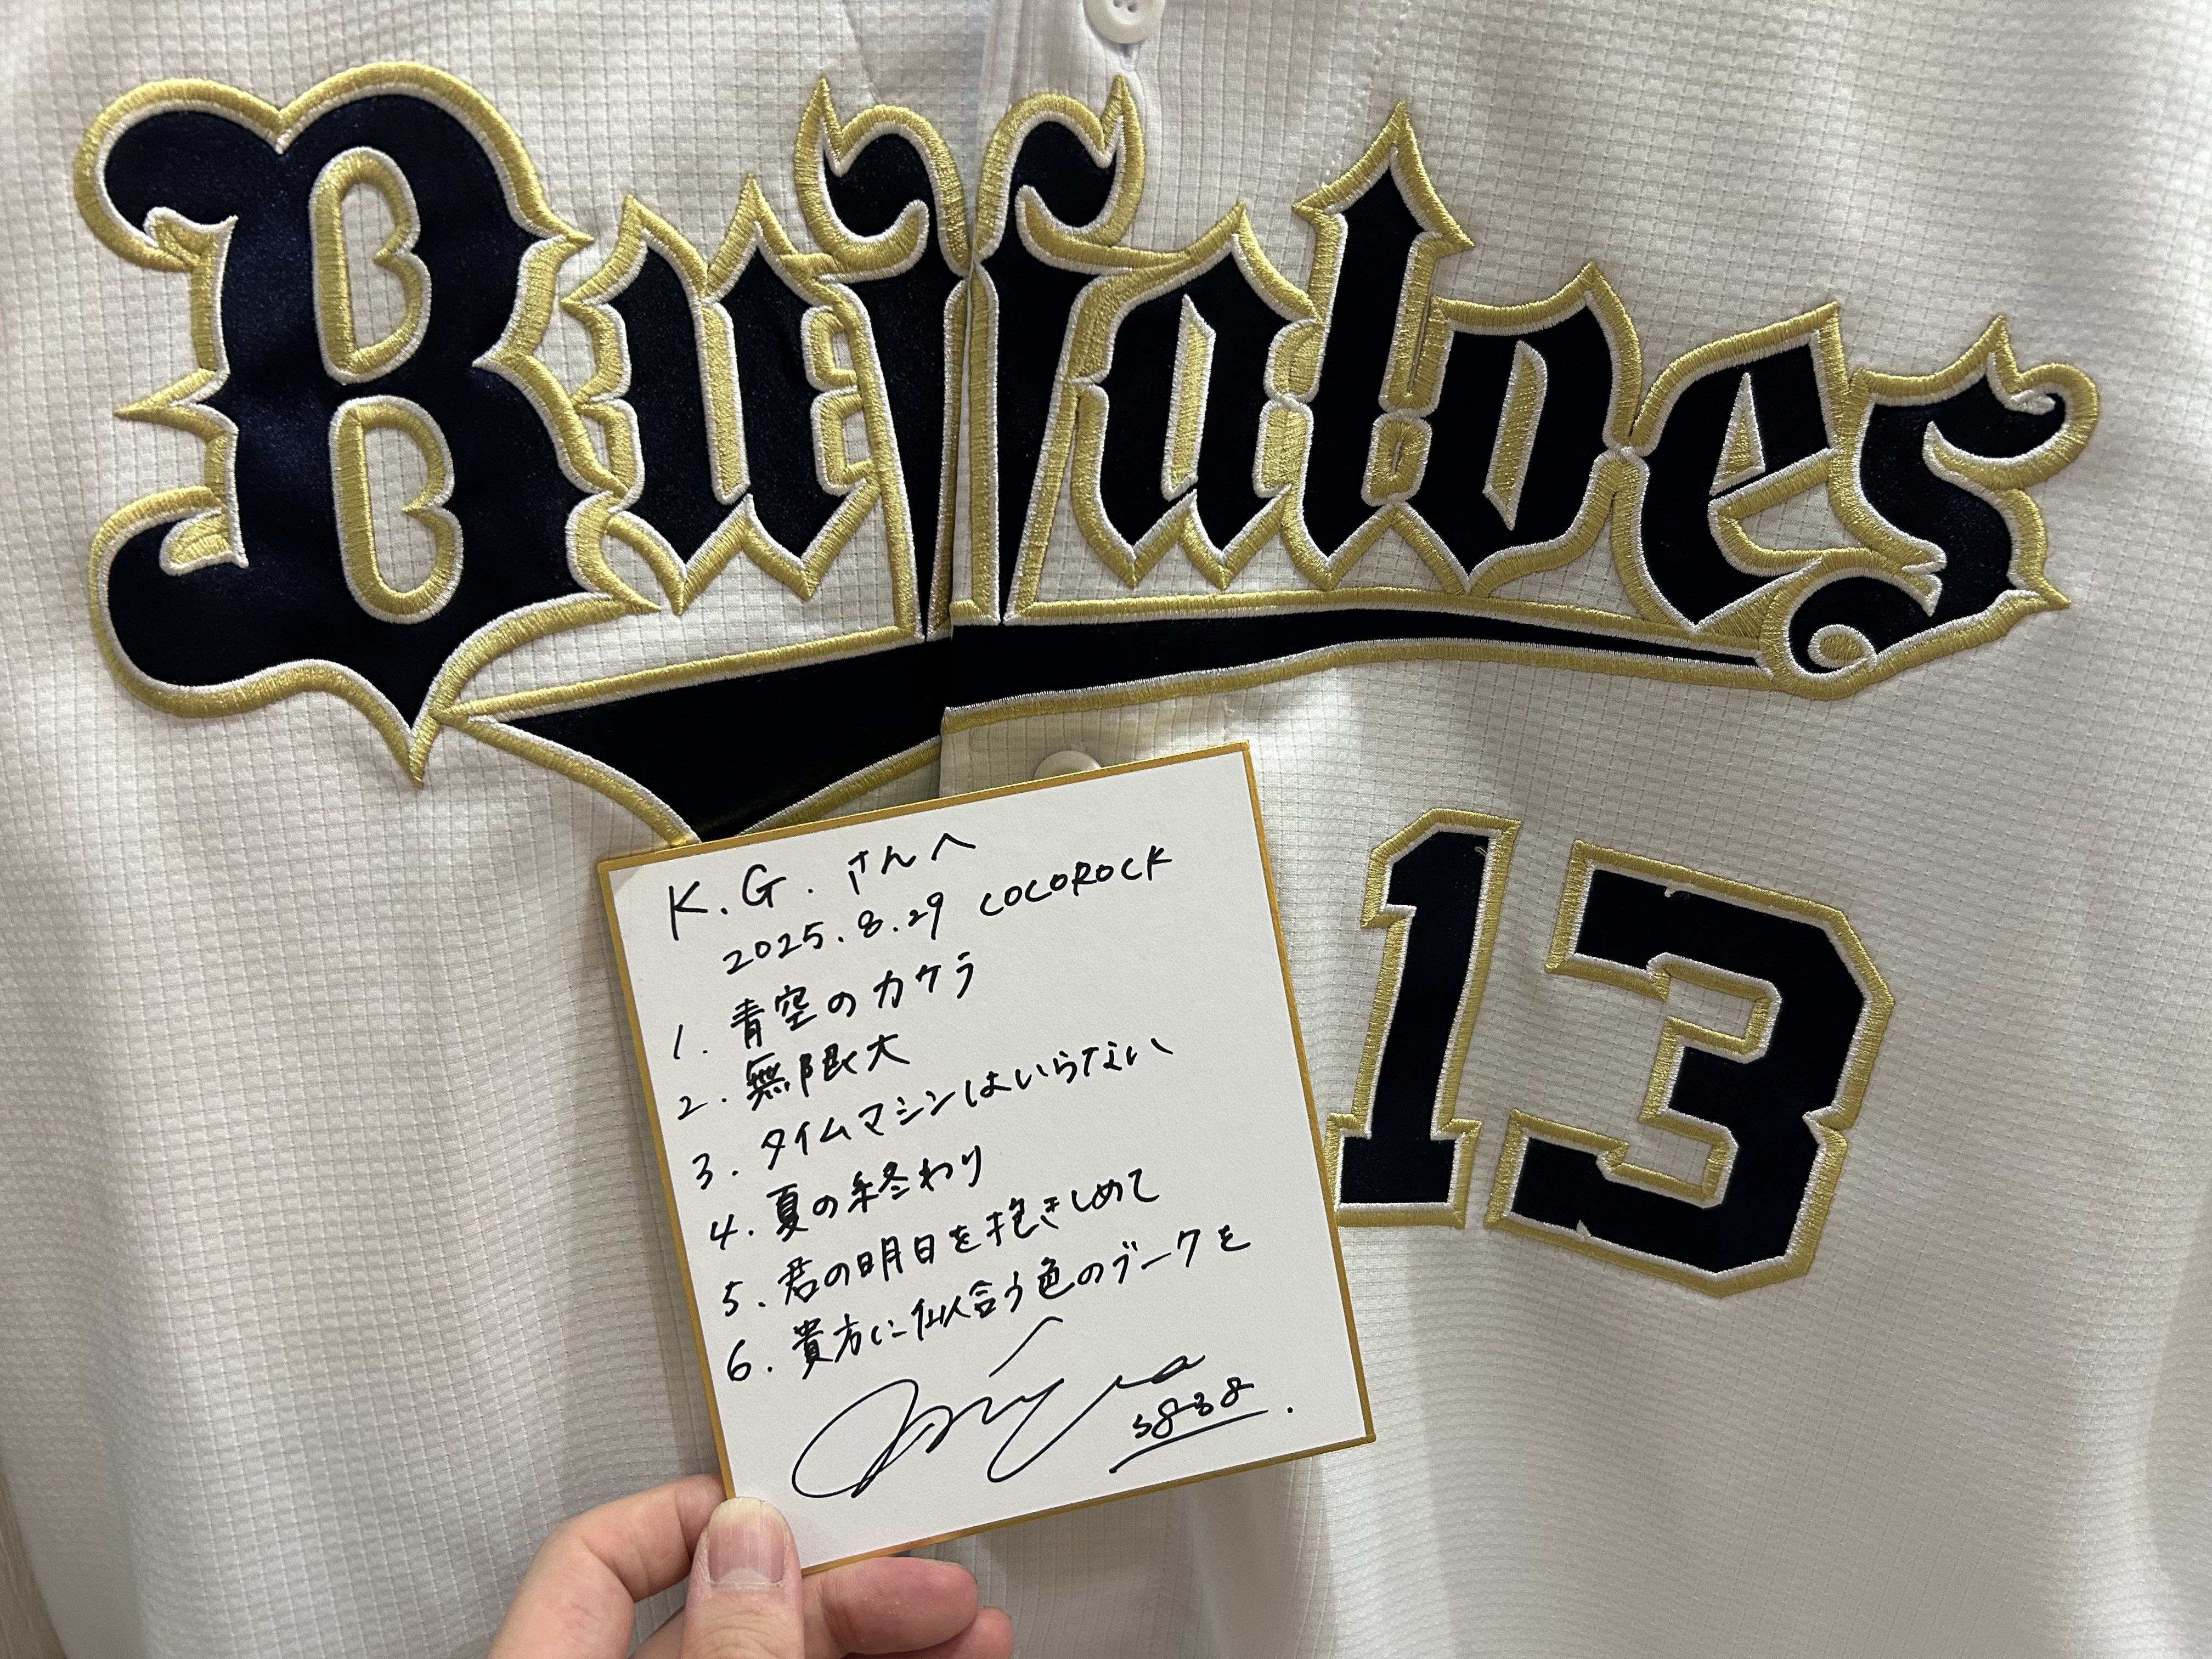 Buffaloes
13
K.G.さんへ
2025.8.29 COCOROCK
1. 青空のカケラ
2. 無限大
3. タイムマシンはいらない
4. 夏の終わり
5. 君の明日を抱きしめて
6. 貴方に似合う色のブーケを